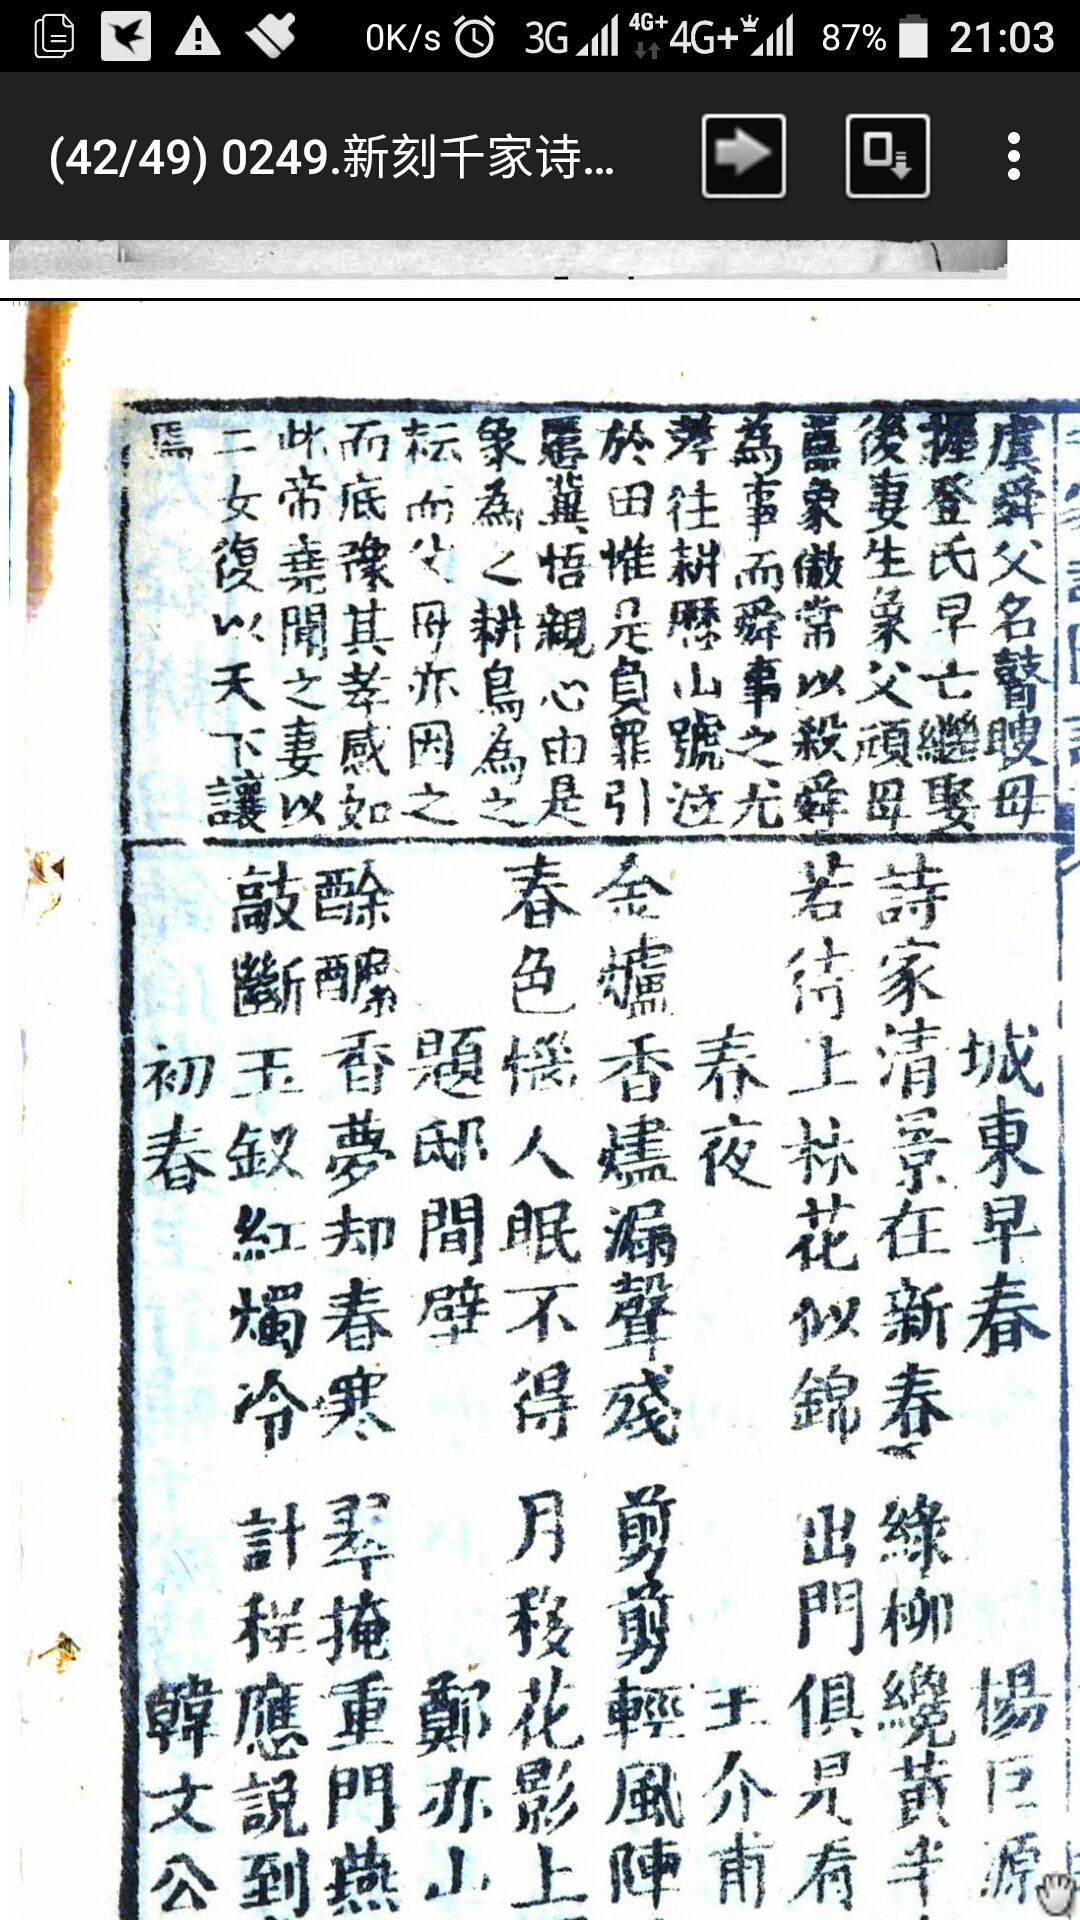 0K/s 3G 4G+ 4G+ 87% 21:03
(42/49) 0249.新刻千家诗...
虞舜父名瞽瞍母
握登氏早亡繼娶
後妻生象父頑母
嚚象傲常以殺舜
為事而舜事之尤
孝往耕歷山號泣
於田惟是負罪引
慝冀悟親心由是
象為之耕鳥為之
耘而父母亦因之
而底豫其孝感如
此帝堯聞之妻以
二女復以天下讓
焉
城東早春 楊巨源
詩家清景在新春 綠柳纔黃半
若待上林花似錦 出門俱是看
春夜 王介甫
金爐香燼漏聲殘 剪剪輕風陣
春色惱人眠不得 月移花影上
題邸間壁 鄭亦山
酴醾香夢却春寒 翠掩重門燕
敲斷玉釵紅燭冷 計程應説到
初春 韓文公